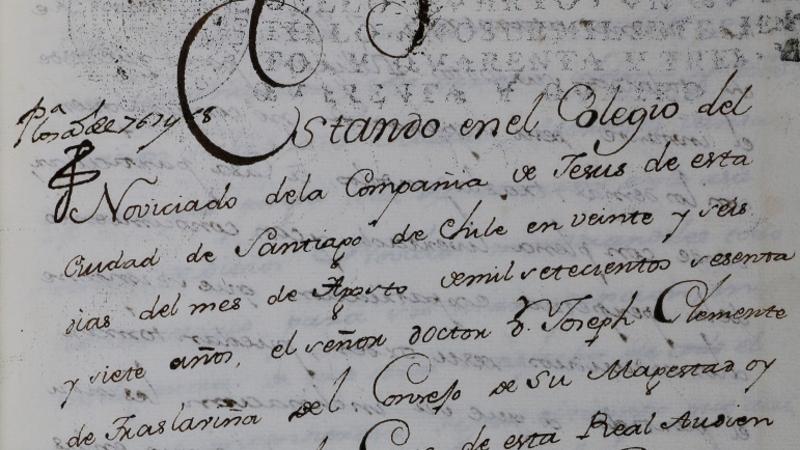 Pª los as de 767 y 68
Estando en el Colegio del
Noviciado dela Compañia de Jesus de esta
Ciudad de Santiago de Chile en veinte y seis
dias del mes de Agosto demil setecientos sesenta
y siete años, el señor Doctor D. Joseph Clemente
de Traslaviña del Consejo de Su Magestad oy
de esta Real Audien